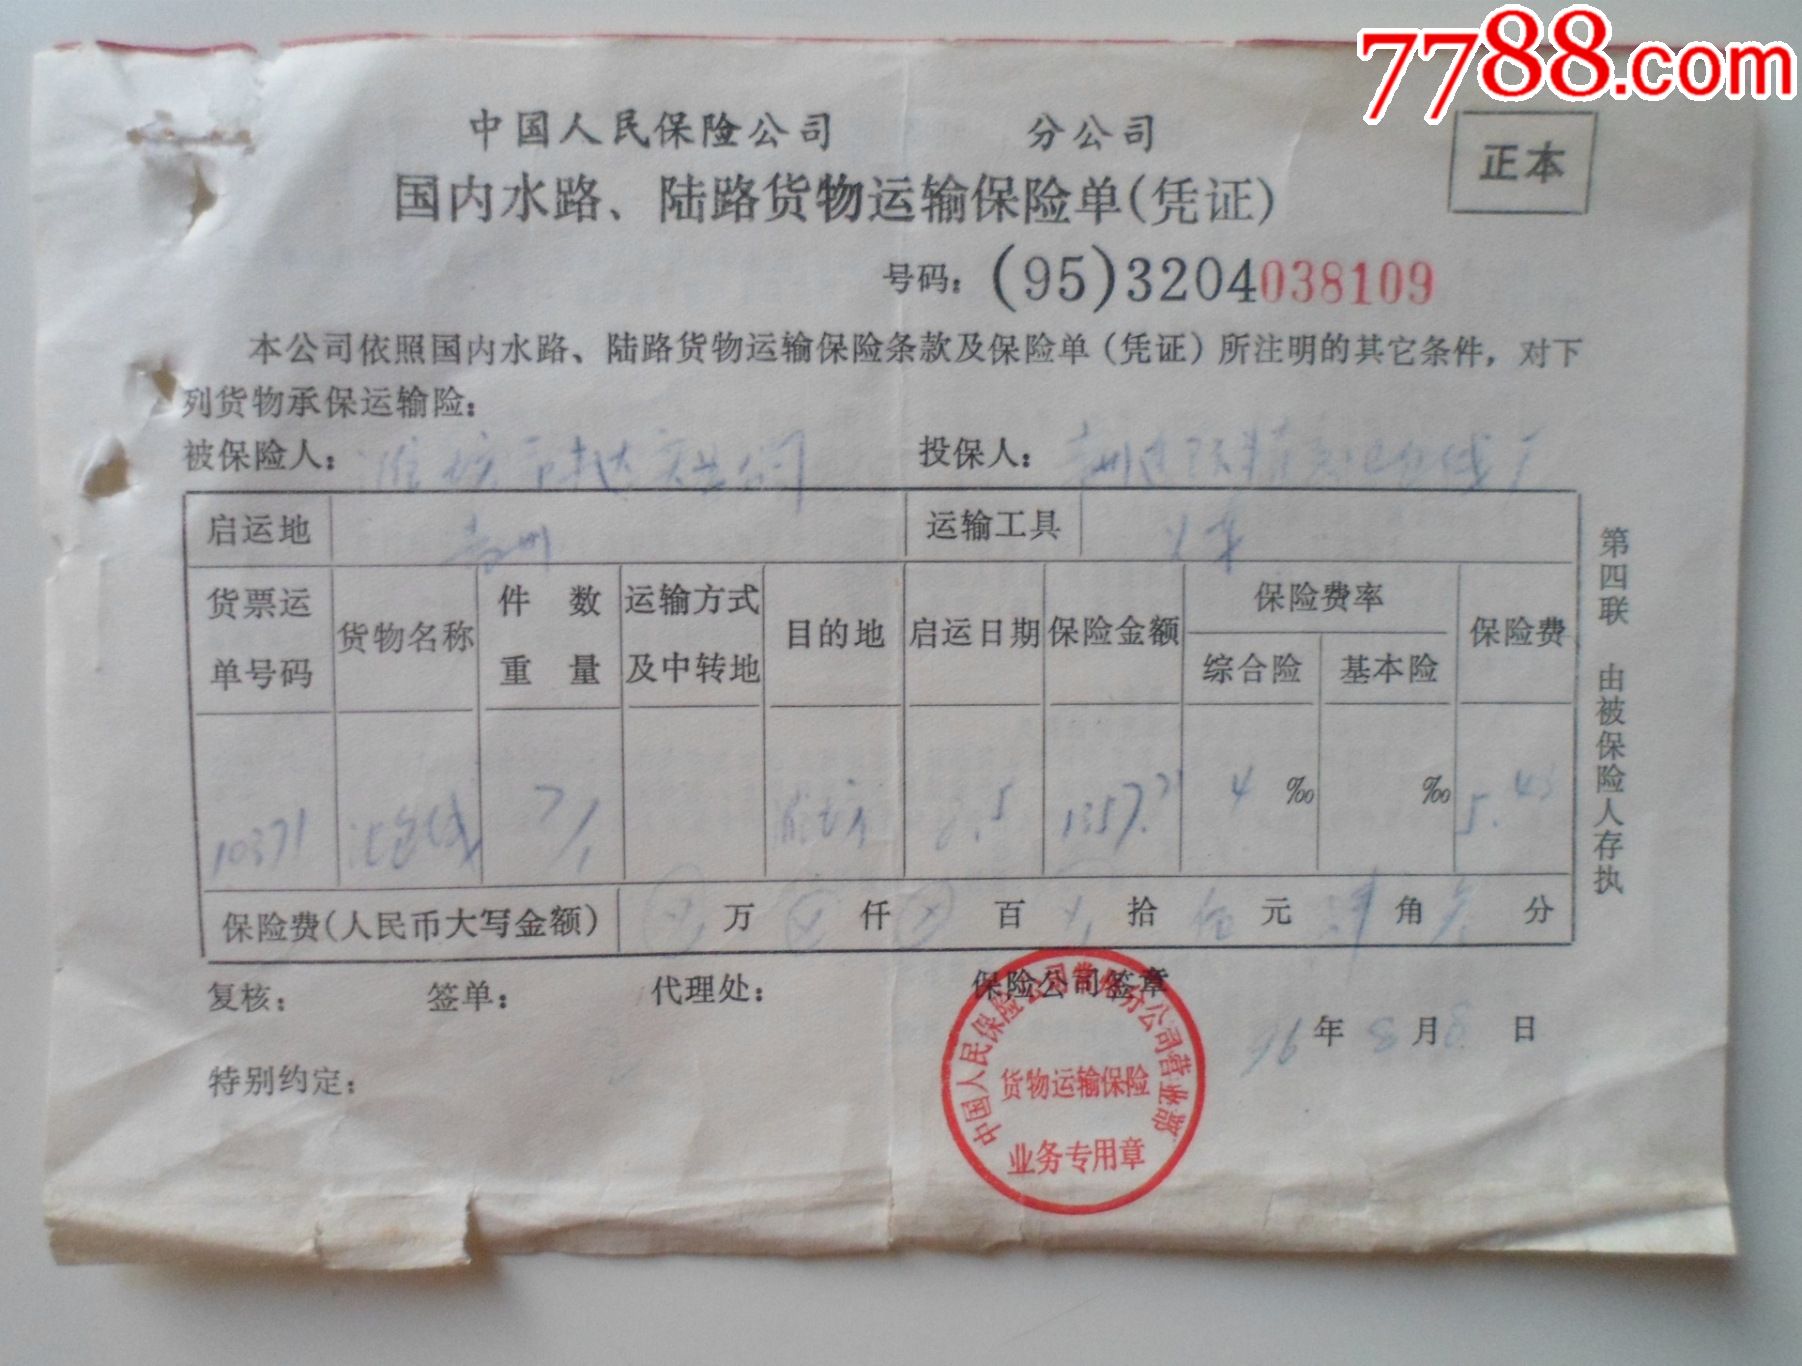 7788.com
中国人民保险公司 分公司
正本
国内水路、陆路货物运输保险单(凭证)
号码：(95)3204038109
本公司依照国内水路、陆路货物运输保险条款及保险单（凭证）所注明的其它条件，对下
列货物承保运输险：
被保险人： 投保人：
启运地 运输工具 火车
货票运单号码 货物名称 件数重量 运输方式及中转地 目的地 启运日期 保险金额 保险费率 保险费
综合险 基本险
10371 漆包线 7/1 潍坊 8.5 1357.71 4 ‰ ‰ 5.43
保险费(人民币大写金额) 万 仟 百 拾 伍 元 肆 角 分
复核： 签单： 代理处： 保险公司签章
96 年 8 月 8 日
特别约定：
第四联 由被保险人存执
中国人民保险公司常州分公司营业部
货物运输保险
业务专用章